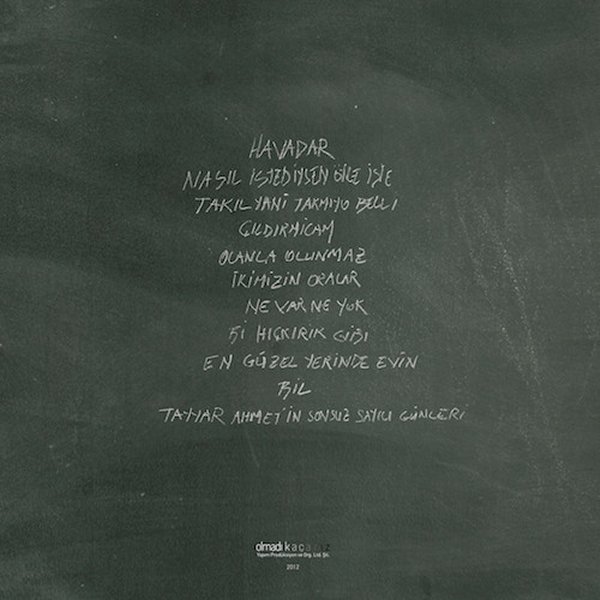 HAVADAR
NASIL İSTEDİYSEN ÖYLE İŞTE
TAKIL YANİ TAKMIYO BELLİ
ÇILDIRMİCAM
OLANLA OLUNMAZ
İKİMİZİN ORALAR
NE VAR NE YOK
Bİ HIÇKIRIK GİBİ
EN GÜZEL YERİNDE EVİN
BİL
AHMET'İN SONSUZ SAYILI GÜNLERİ
olmadı kaçarız
Yapım Prodüksiyon ve Org. Ltd. Şti.
2012